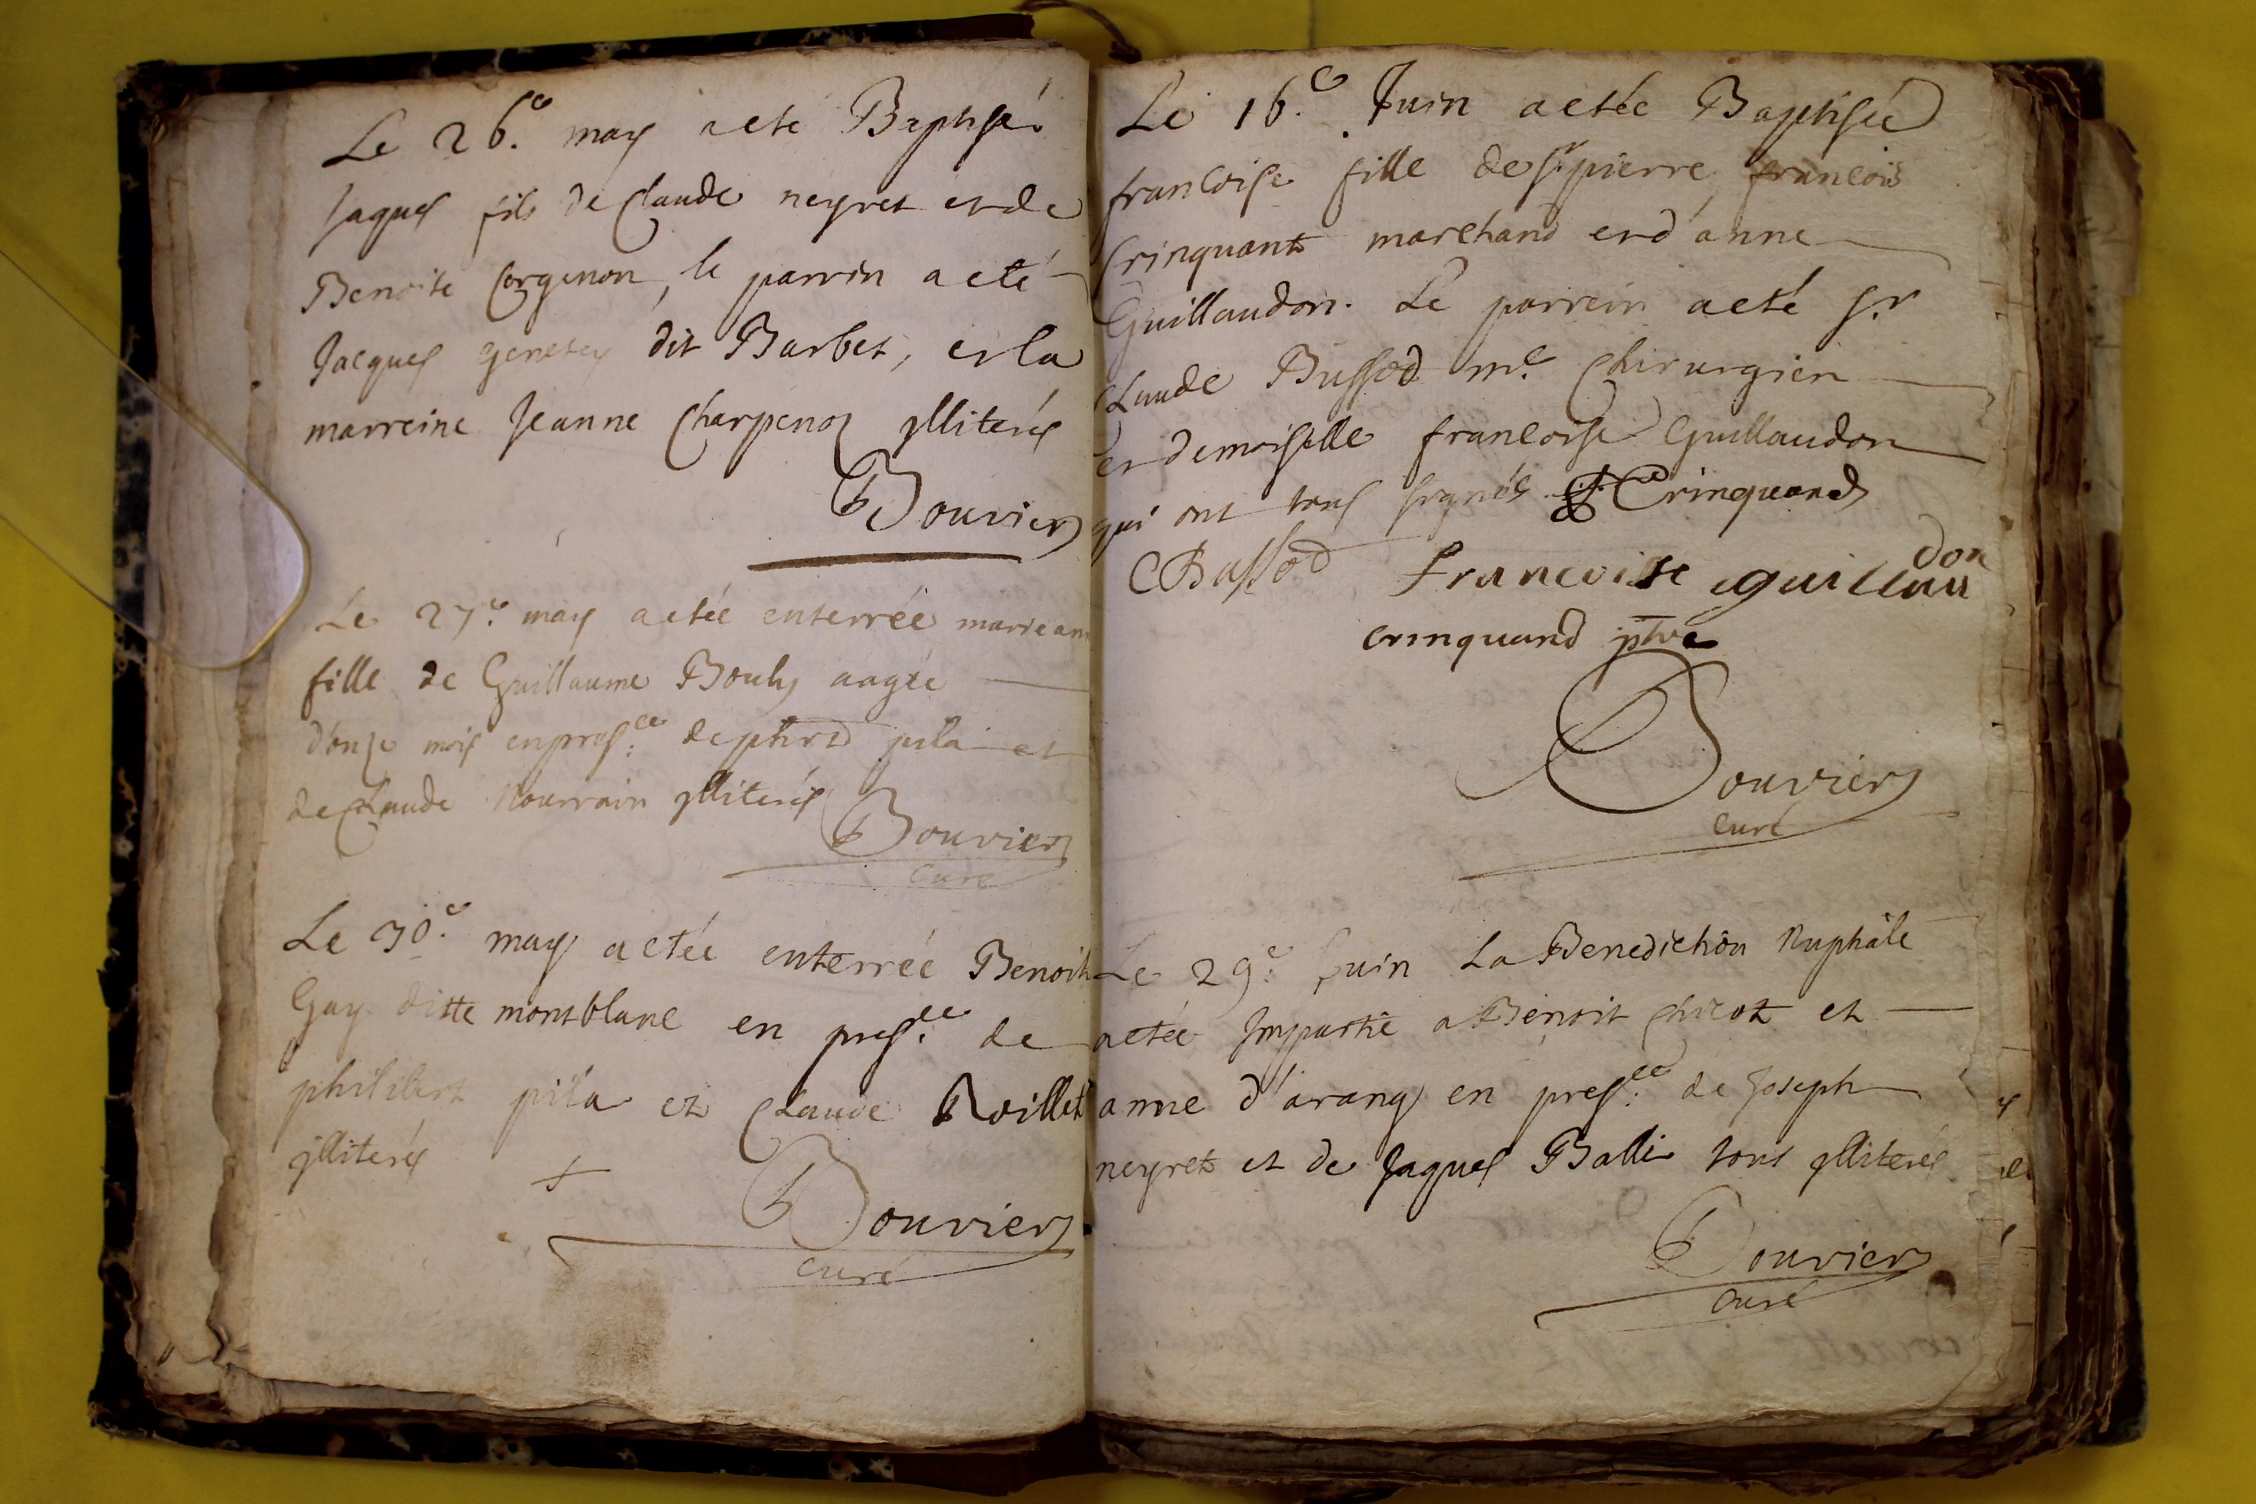 Le 26.e may a eté Baptisé
Jaques fils de Claude neyret et de
Benoite Corgenon, le parrin a eté
Jacques genetey dit Barbet, et la
marreine Jeanne Charpenoz jlliterés
Bouvier
Le 27.e may a etée enterrée marie an
fille de Guillaume Bouly aagée
d'onze mois en pres.ce de phird pila et
de Claude Nourrain jlliterés
Bouvier
Curé
Le 30.e may a etée enterrée Benoit
Gay ditte montblanc en pres.ce de
philibert pila et Claude Roillet
jlliterés
Bouvier
curé
Le 16.e Juin a etée Baptisée
francoise fille de sr pierre francois
Crinquant marchand et d'anne
Guillaudon. Le parrein a eté sr
Claude Bussod me. Chirurgien
et demoiselle francoise Guillaudon
qui ont tous signés Crinquand
CBussod francoisse guillau
don
crinquand ptre
Bouvier
curé
Le 29.e Juin La Benediction Nuptiale
a etée Impartie a Benoit Chicot et
anne d'arang en pres.ce de Joseph
neyret et de Jaques Balli tous jlliterés
Bouvier
Curé